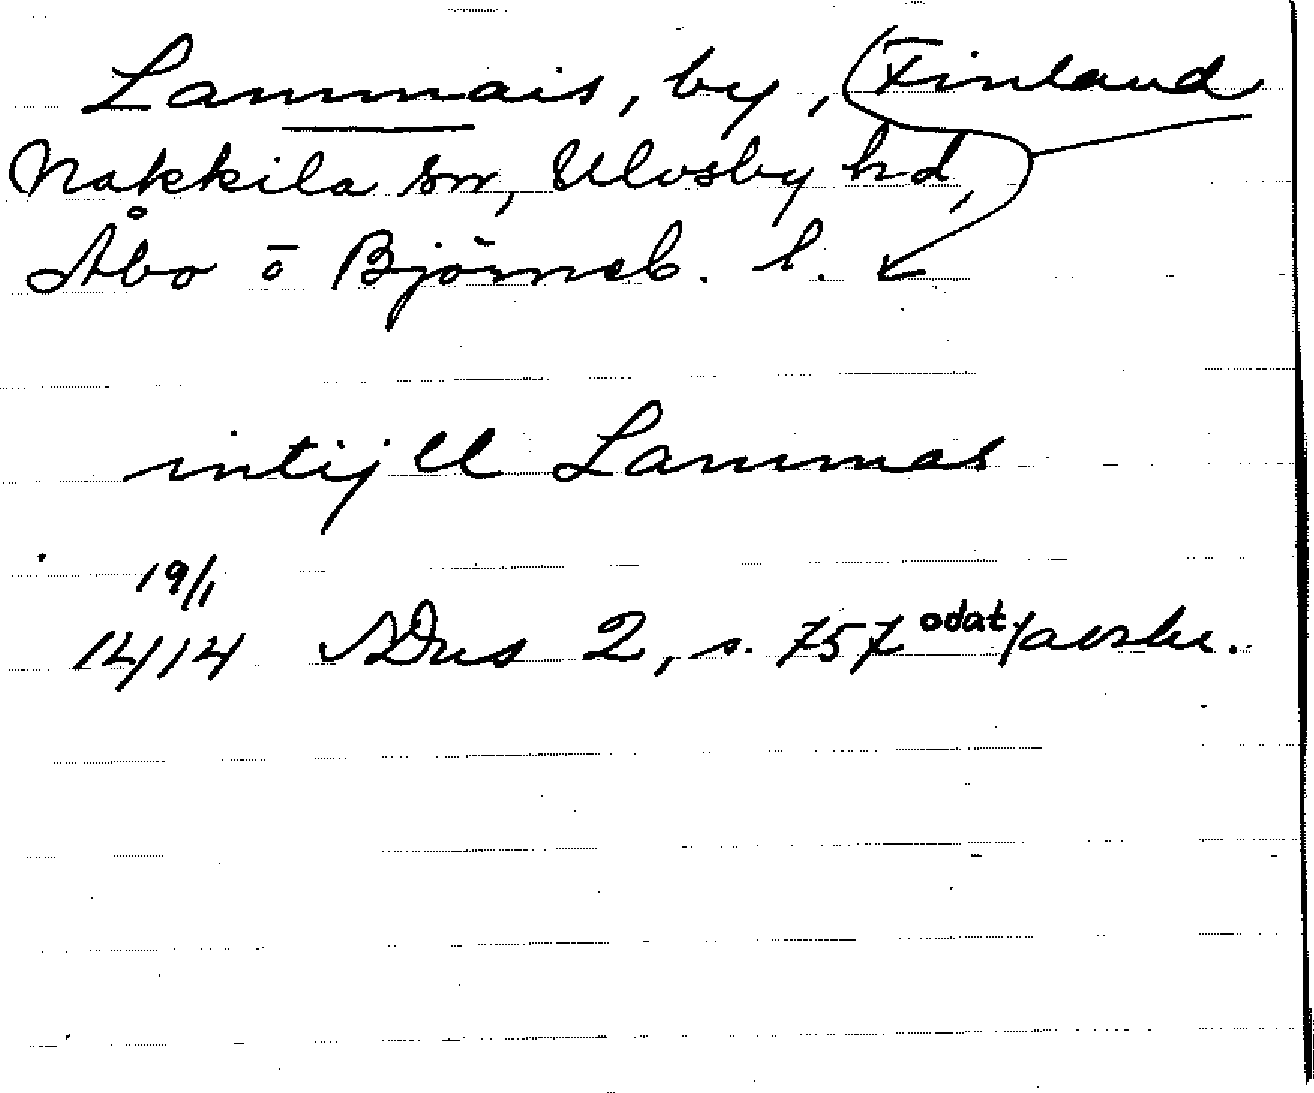 Lammais, by, (Finland
Nakkila sn, Ulvsby hd,
Åbo o Björneb. l.
intill Lammas
19/1
1414 Dus 2, s. 757 odat. avskr.